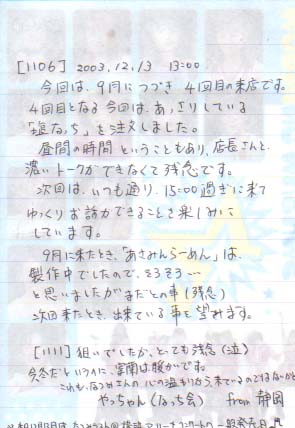 [1106] 2003.12.13 13:00
今回は、9月につづき 4回目の来店です。
4回目となる今回は、あっさりしている
「塩なっち」を注文しました。
昼間の時間ということもあり、店長さんと、
濃いトークができなくて残念です。
次回は、いつも通り、15:00過ぎに来て
ゆっくりお話ができることを楽しみに
しています。
9月に来たとき、「あさみらーめん」は、
製作中でしたので、そろそろ…
と思いましたがまだとの事(残念)
次回来たとき、出来ている事を望みます。
[1111] 狙いでしたが、とっても残念(泣)
冬だというのに、室蘭は暖かです。
これも、なつみさんの心の温もりから来ているのではないかと
やっちゃん(なっち会) from 静岡